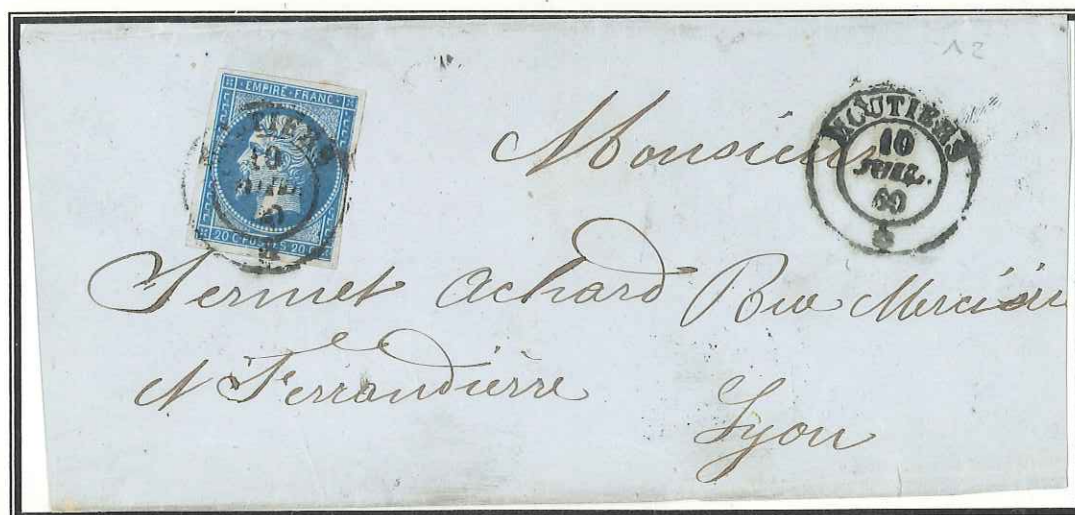 12
EMPIRE · FRANC
20 C POSTES 20 C
MOUTIERS
10
JUIL.
60
MOUTIERS
10
JUIL.
60
8
Monsieur
Sermet Achard Rue Mercière
et Ferrandière
Lyon